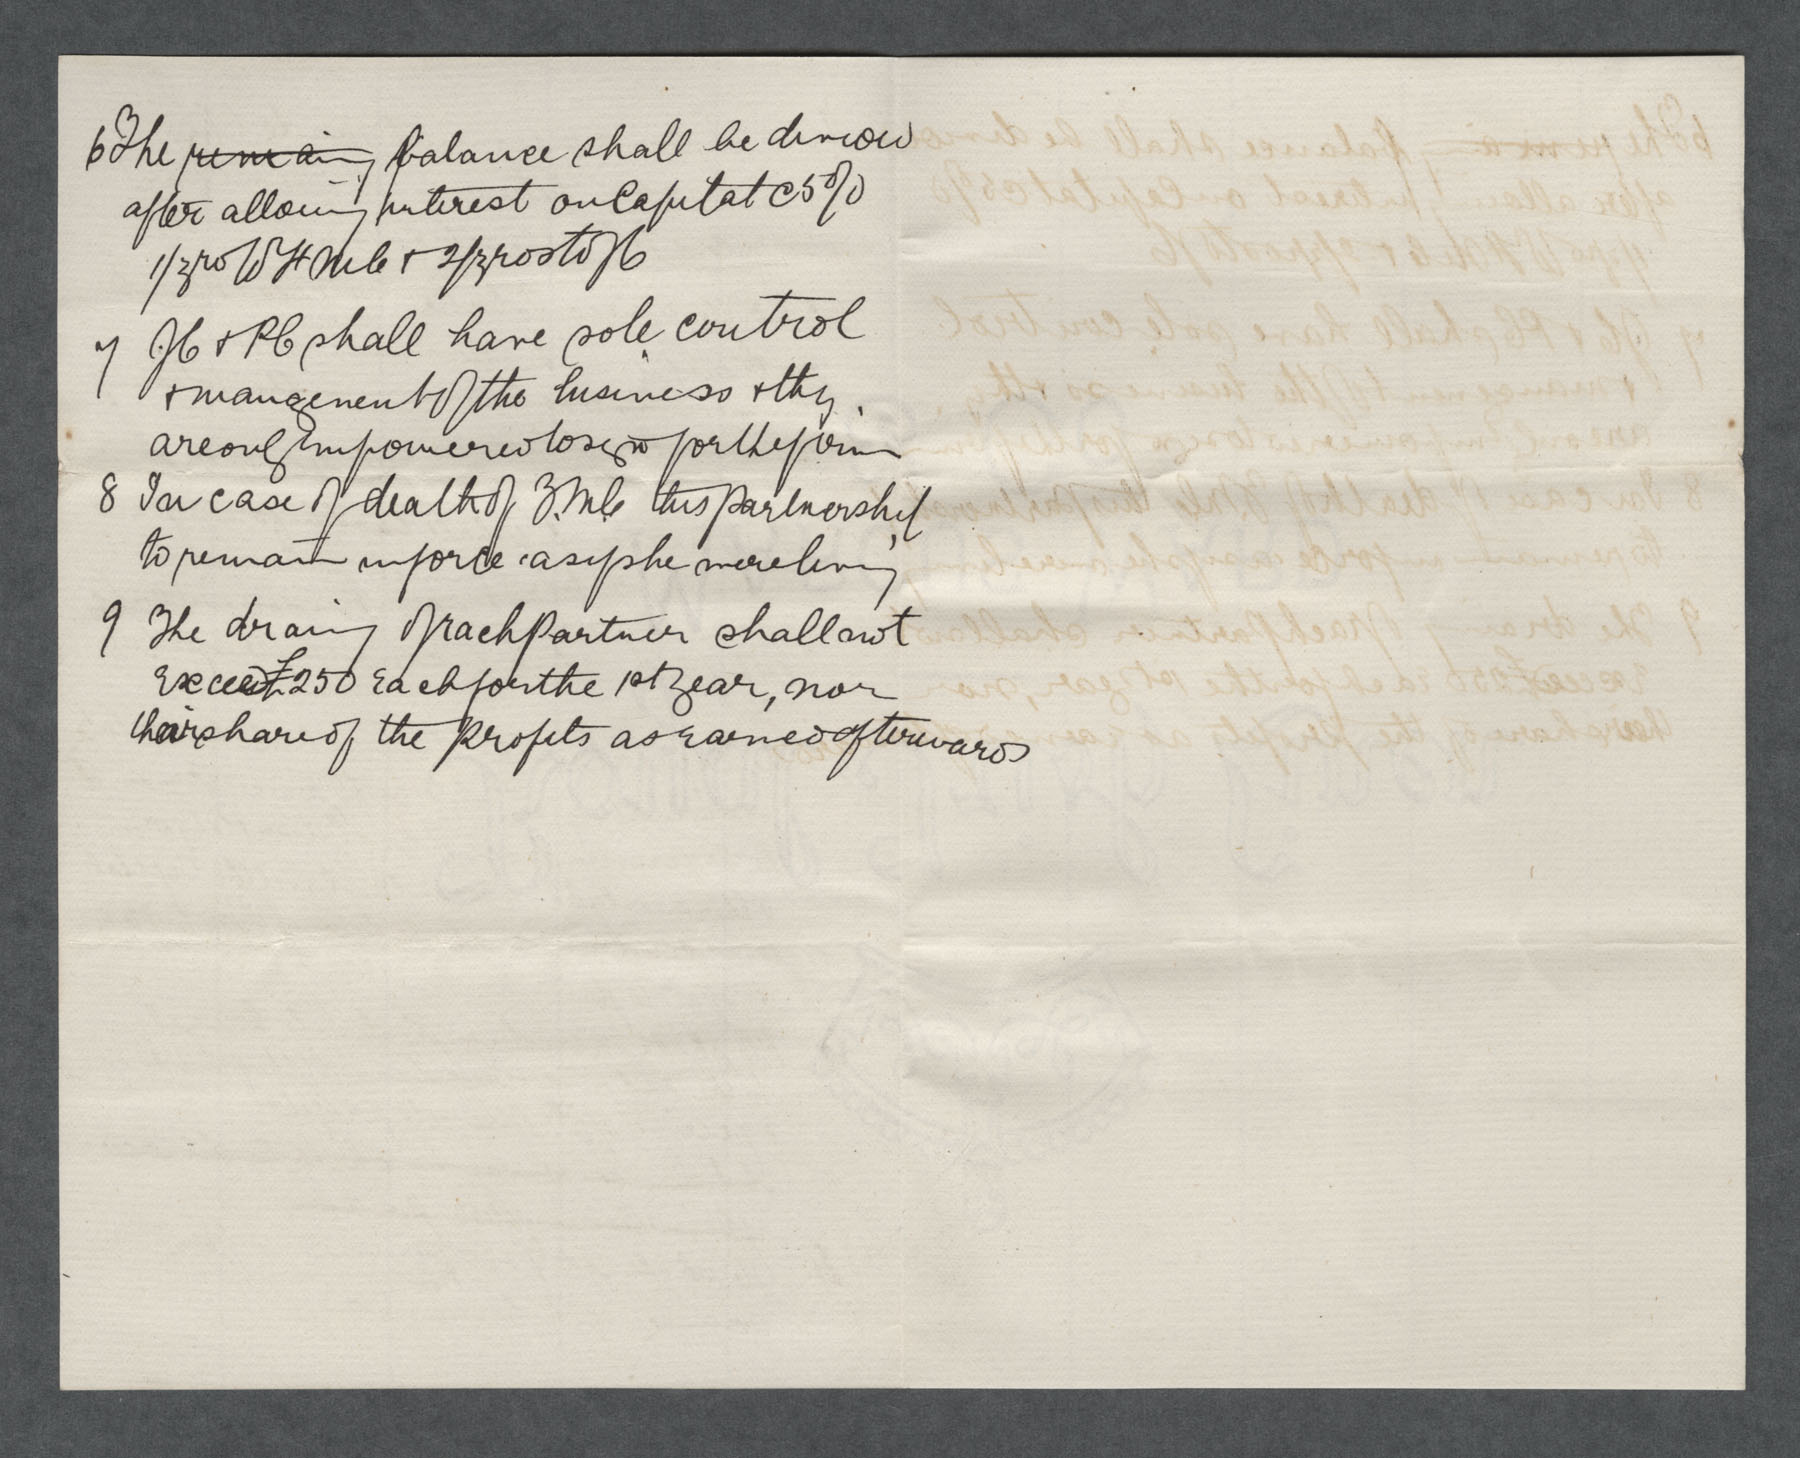 6 The remaing balance shall be divided
after allowing interest on Capital at 5%
1/3rd to W H McC & 2/3rds to JC
7 JC & PC shall have sole control
& management of the business & they
are only empowered to sign for the firm
8 In case of death of McC this partnership
to remain in force as if she were living
9 The drawing of each Partner shall not
exceed £250 Each for the 1st year, nor
their share of the Profits as earned afterwards